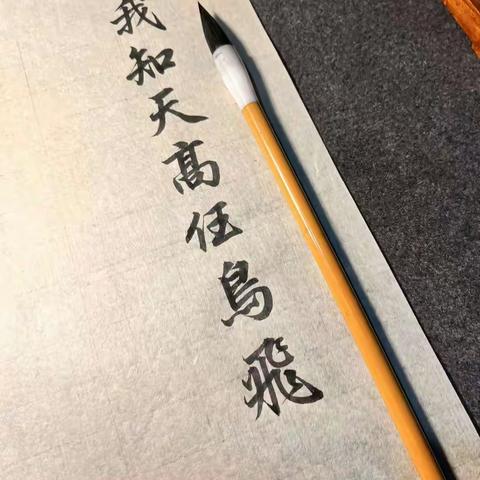 我知天高任鳥飛